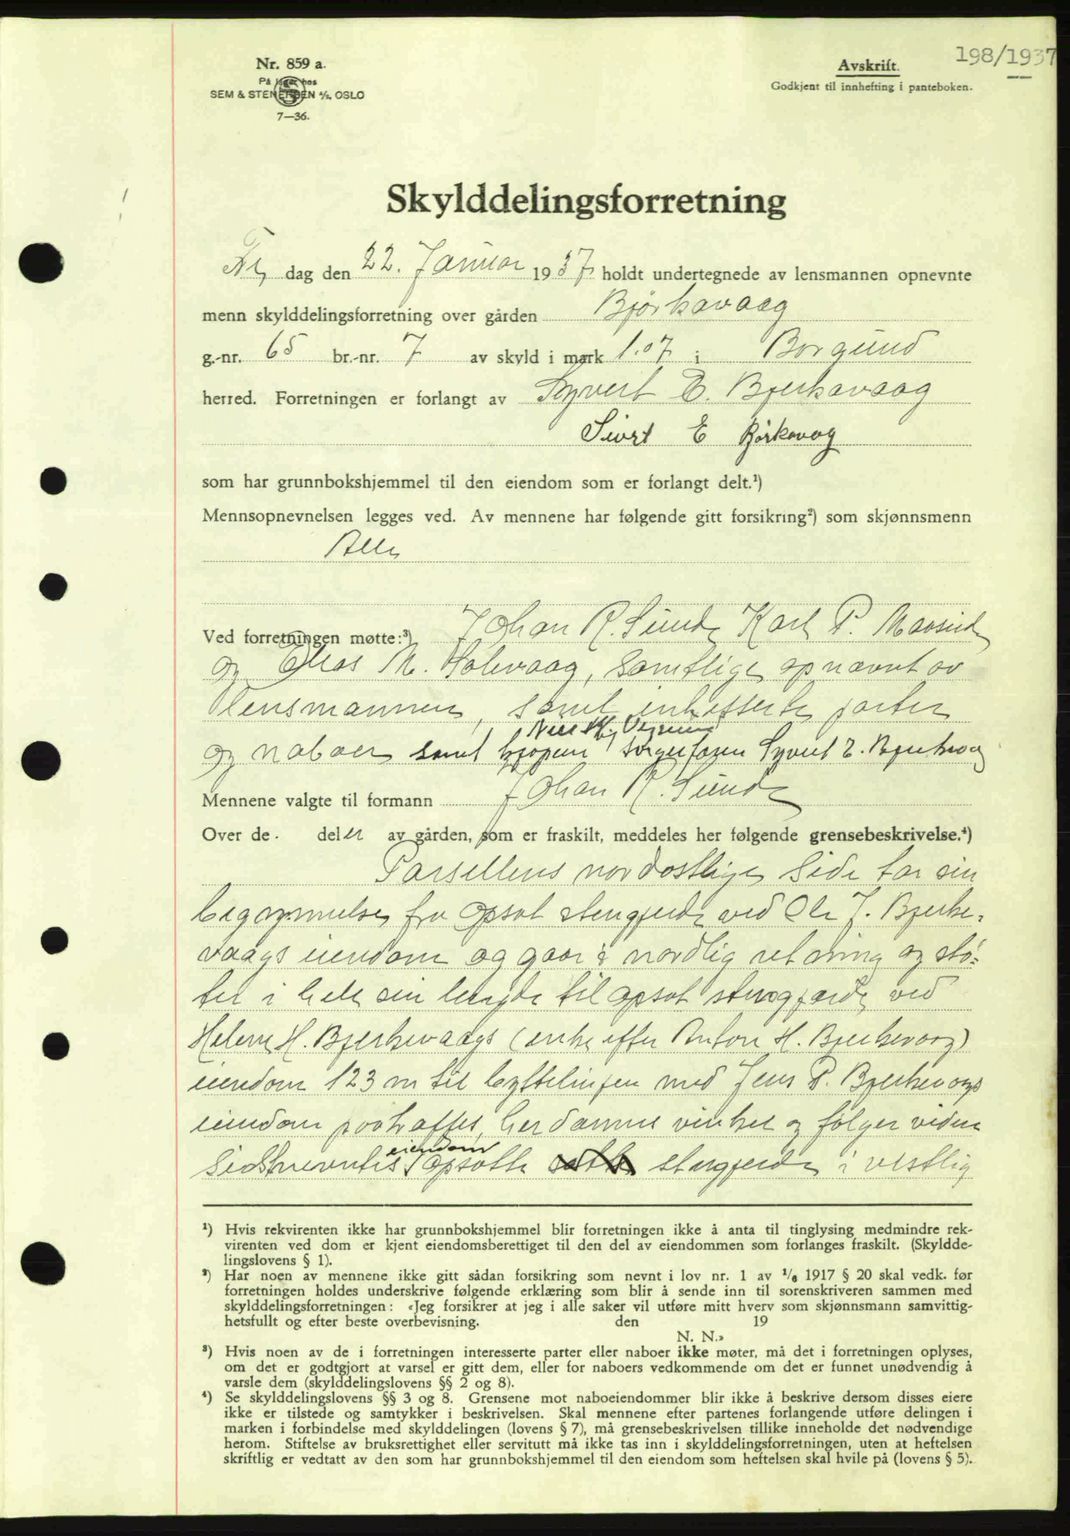 198/1937
Nr. 859 a.
På lager hos
SEM & STENERSEN A/S, OSLO
7—36.
Avskrift.
Godkjent til innhefting i panteboken.
Skylddelingsforretning
Fre dag den 22. Januar 1937 holdt undertegnede av lensmannen opnevnte
menn skylddelingsforretning over gården Bjørkavaag
g.-nr. 65 br.-nr. 7 av skyld i mark 1.07 i Borgund
herred. Forretningen er forlangt av Syvert E. Bjerkavaag
Sivert E Bjørkavag
som har grunnbokshjemmel til den eiendom som er forlangt delt.¹)
Mennsopnevnelsen legges ved. Av mennene har følgende gitt forsikring²) som skjønnsmenn
Alle
Ved forretningen møtte:³) Johan R. Sunde Karl P. Mauseid
og Elias M. Solevaag, samtlige opnævnt av
lensmannen, samt interesserte parter
og naboer samt kjøperen Nils K. Vegsund, sælgeren Syvert E. Bjerkevag
Mennene valgte til formann Johan R. Sunde
Over de. deler av gården, som er fraskilt, meddeles her følgende grensebeskrivelse.⁴)
Parsellens nordostlige Side tar sin
begynnelse fra opsat stengjerde ved Ole J. Bjerke-
vaags eiendom og gaar i nordlig retning og stø-
ter i hele sin lengde til opsat stengjerde ved
Helene H. Bjerkevaags (enke efter Anton H. Bjerkevaag)
eiendom 123 m til byttelinjen med Jens P. Bjerkevaags
eiendom paatræffes, her dannes vinkel og følger videre
Sidstnevntes eiendom opsatte stengjerde i vestlig
¹) Hvis rekvirenten ikke har grunnbokshjemmel blir forretningen ikke å anta til tinglysing medmindre rek-
virenten ved dom er kjent eiendomsberettiget til den del av eiendommen som forlanges fraskilt. (Skyldde-
lingslovens § 1).
²) Har noen av mennene ikke gitt sådan forsikring som nevnt i lov nr. 1 av ¹/₆ 1917 § 20 skal vedk. før
forretningen holdes underskrive følgende erklæring som blir å sende inn til sorenskriveren sammen med
skylddelingsforretningen: «Jeg forsikrer at jeg i alle saker vil utføre mitt hverv som skjønnsmann samvittig-
hetsfullt og efter beste overbevisning. den 19
N. N.»
³) Hvis noen av de i forretningen interesserte parter eller naboer ikke møter, må det i forretningen oplyses,
om det er godtgjort at varsel er gitt dem, eller for naboers vedkommende om det er funnet unødvendig å
varsle dem (skylddelingslovens §§ 2 og 8).
⁴) Se skylddelingslovens §§ 3 og 8. Grensene mot naboeiendommer blir ikke å beskrive dersom disses eiere
ikke er tilstede og samtykker i beskrivelsen. Skal mennene efter partenes forlangende utføre delingen i
marken i forbindelse med skylddelingen (lovens § 7), må grensebeskrivelsen tillike inneholde det nødvendige
herom. Stiftelse av bruksrettighet eller servitutt må ikke tas inn i skylddelingsforretningen, uten at heftelsen
skriftlig er vedtatt av den som har grunnbokshjemmel til den eiendom som heftelsen skal hvile på (lovens § 5).